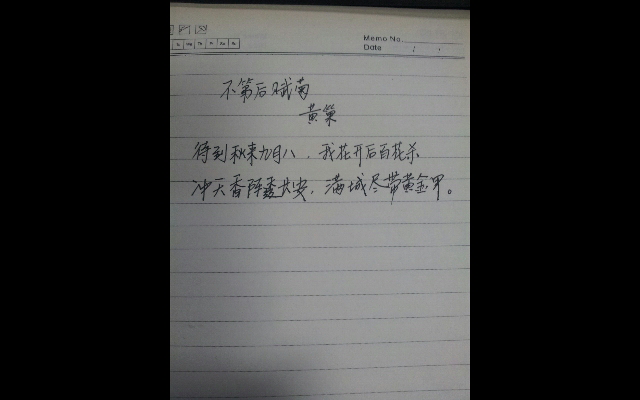 Memo No.
Date
不第后赋菊
黄巢
待到秋来九月八，我花开后百花杀
冲天香阵透长安，满城尽带黄金甲。